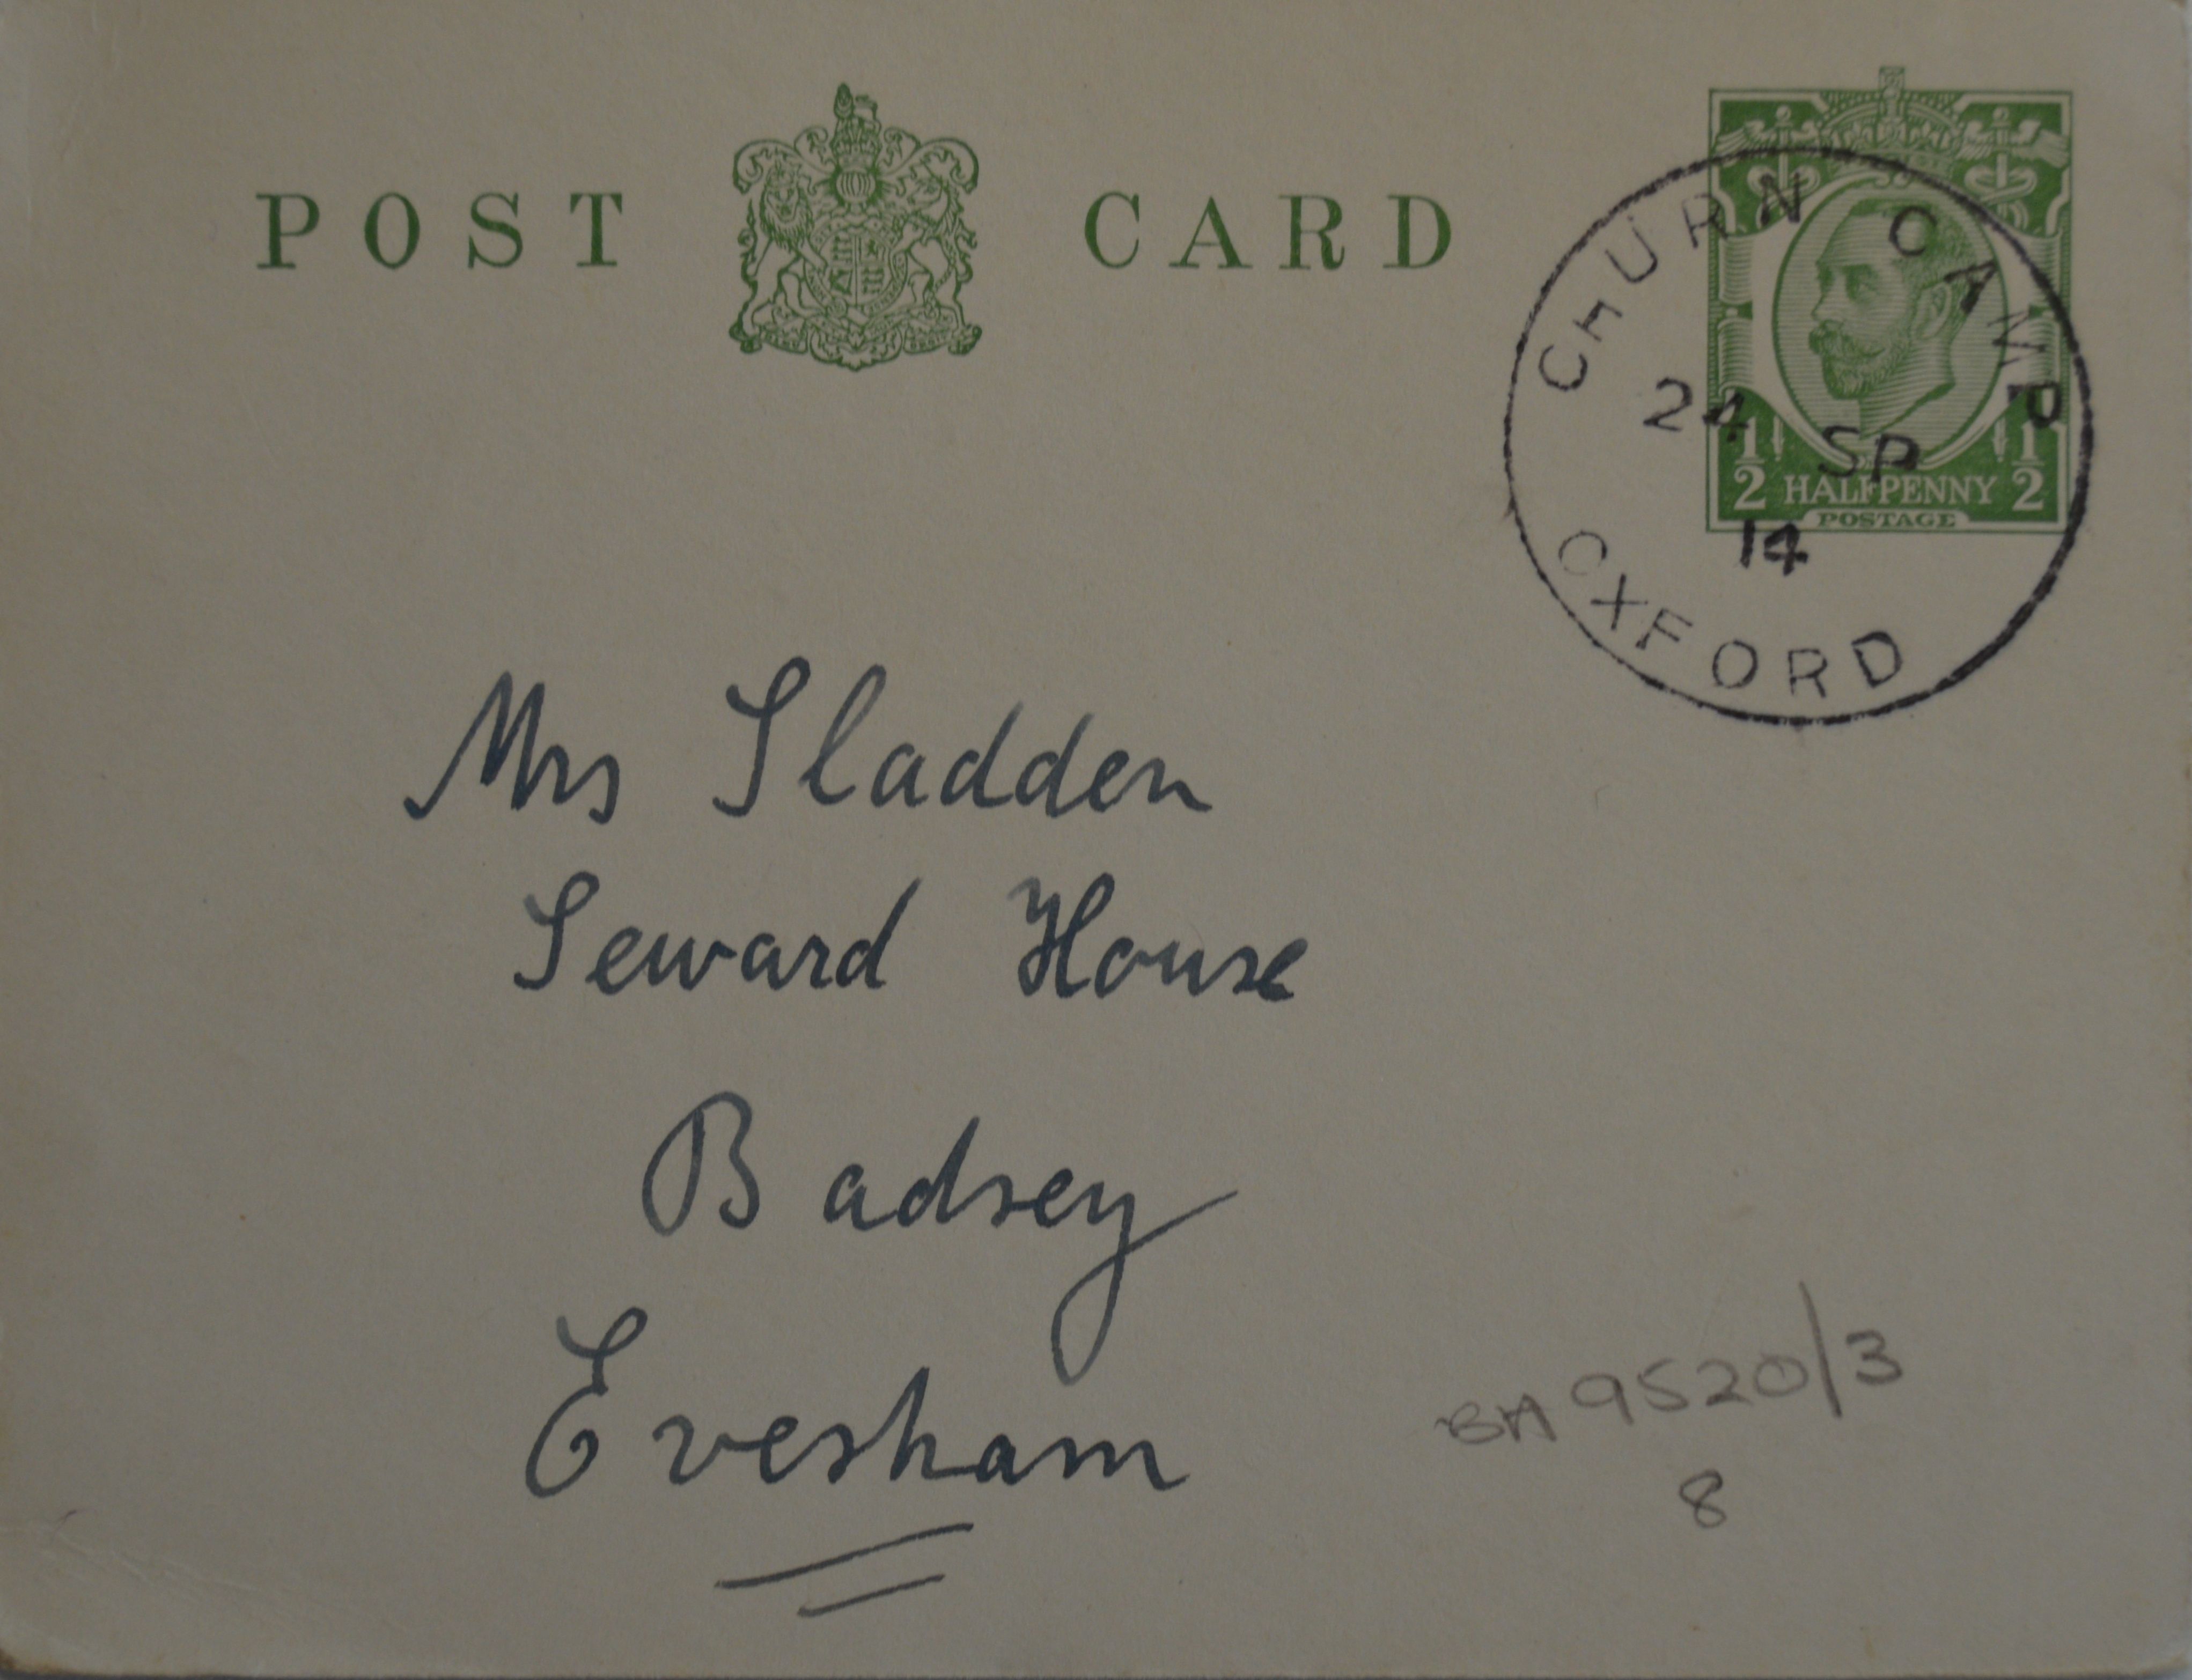 POST CARD
CHURN CAMP
24 SP
14
OXFORD
1/2 HALFPENNY 1/2
POSTAGE
Mrs Sladden
Seward House
Badsey
Evesham
BA 9520/3
8